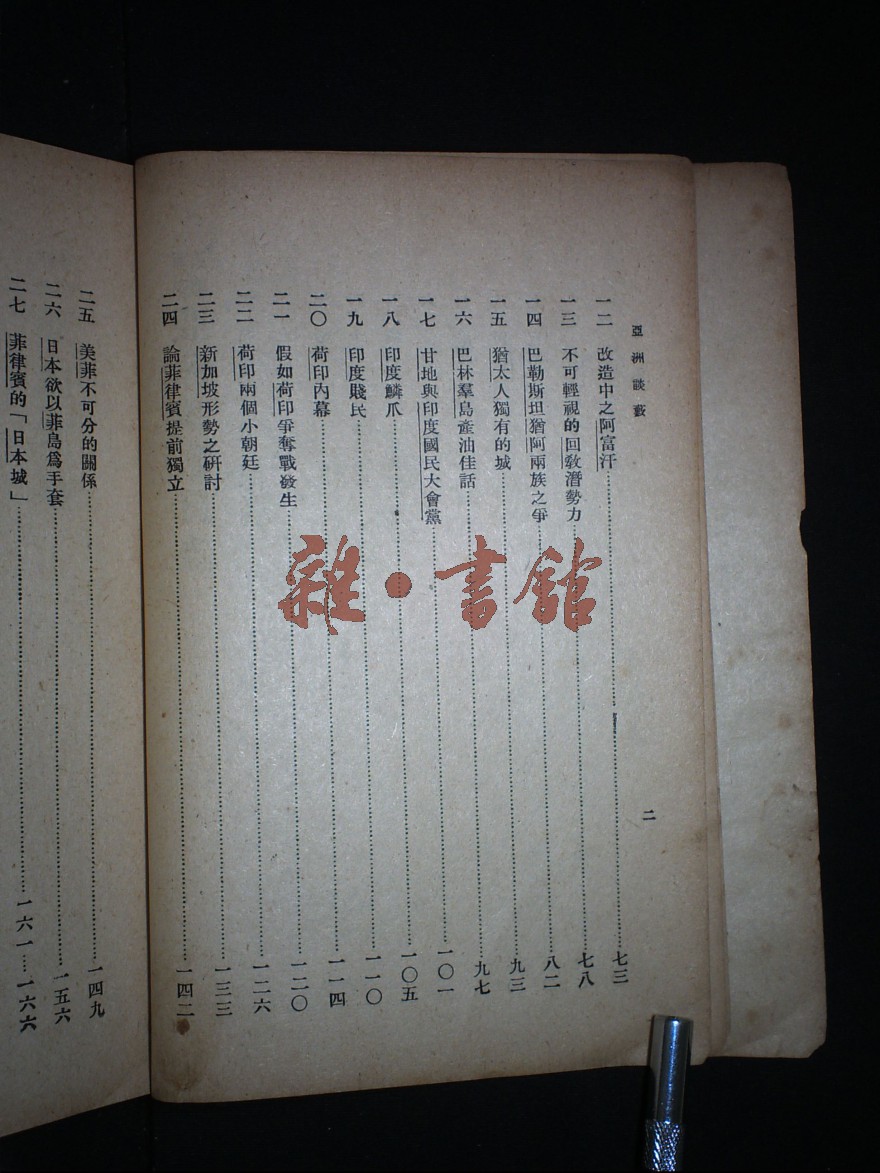 亞洲談藪
二
一二　改造中之阿富汗……七三
一三　不可輕視的回敎潛勢力……七八
一四　巴勒斯坦猶阿兩族之爭……八二
一五　猶太人獨有的城……九三
一六　巴林羣島產油佳話……九七
一七　甘地與印度國民大會黨……一〇一
一八　印度鱗爪……一〇五
一九　印度賤民……一一〇
二〇　荷印內幕……一一四
二一　假如荷印爭奪戰發生……一二〇
二二　荷印兩個小朝廷……一二六
二三　新加坡形勢之研討……一三三
二四　論菲律賓提前獨立……一四二
二五　美菲不可分的關係……一四九
二六　日本欲以菲島爲手套……一五六
二七　菲律賓的「日本城」……一六一……一六六
雜·書館